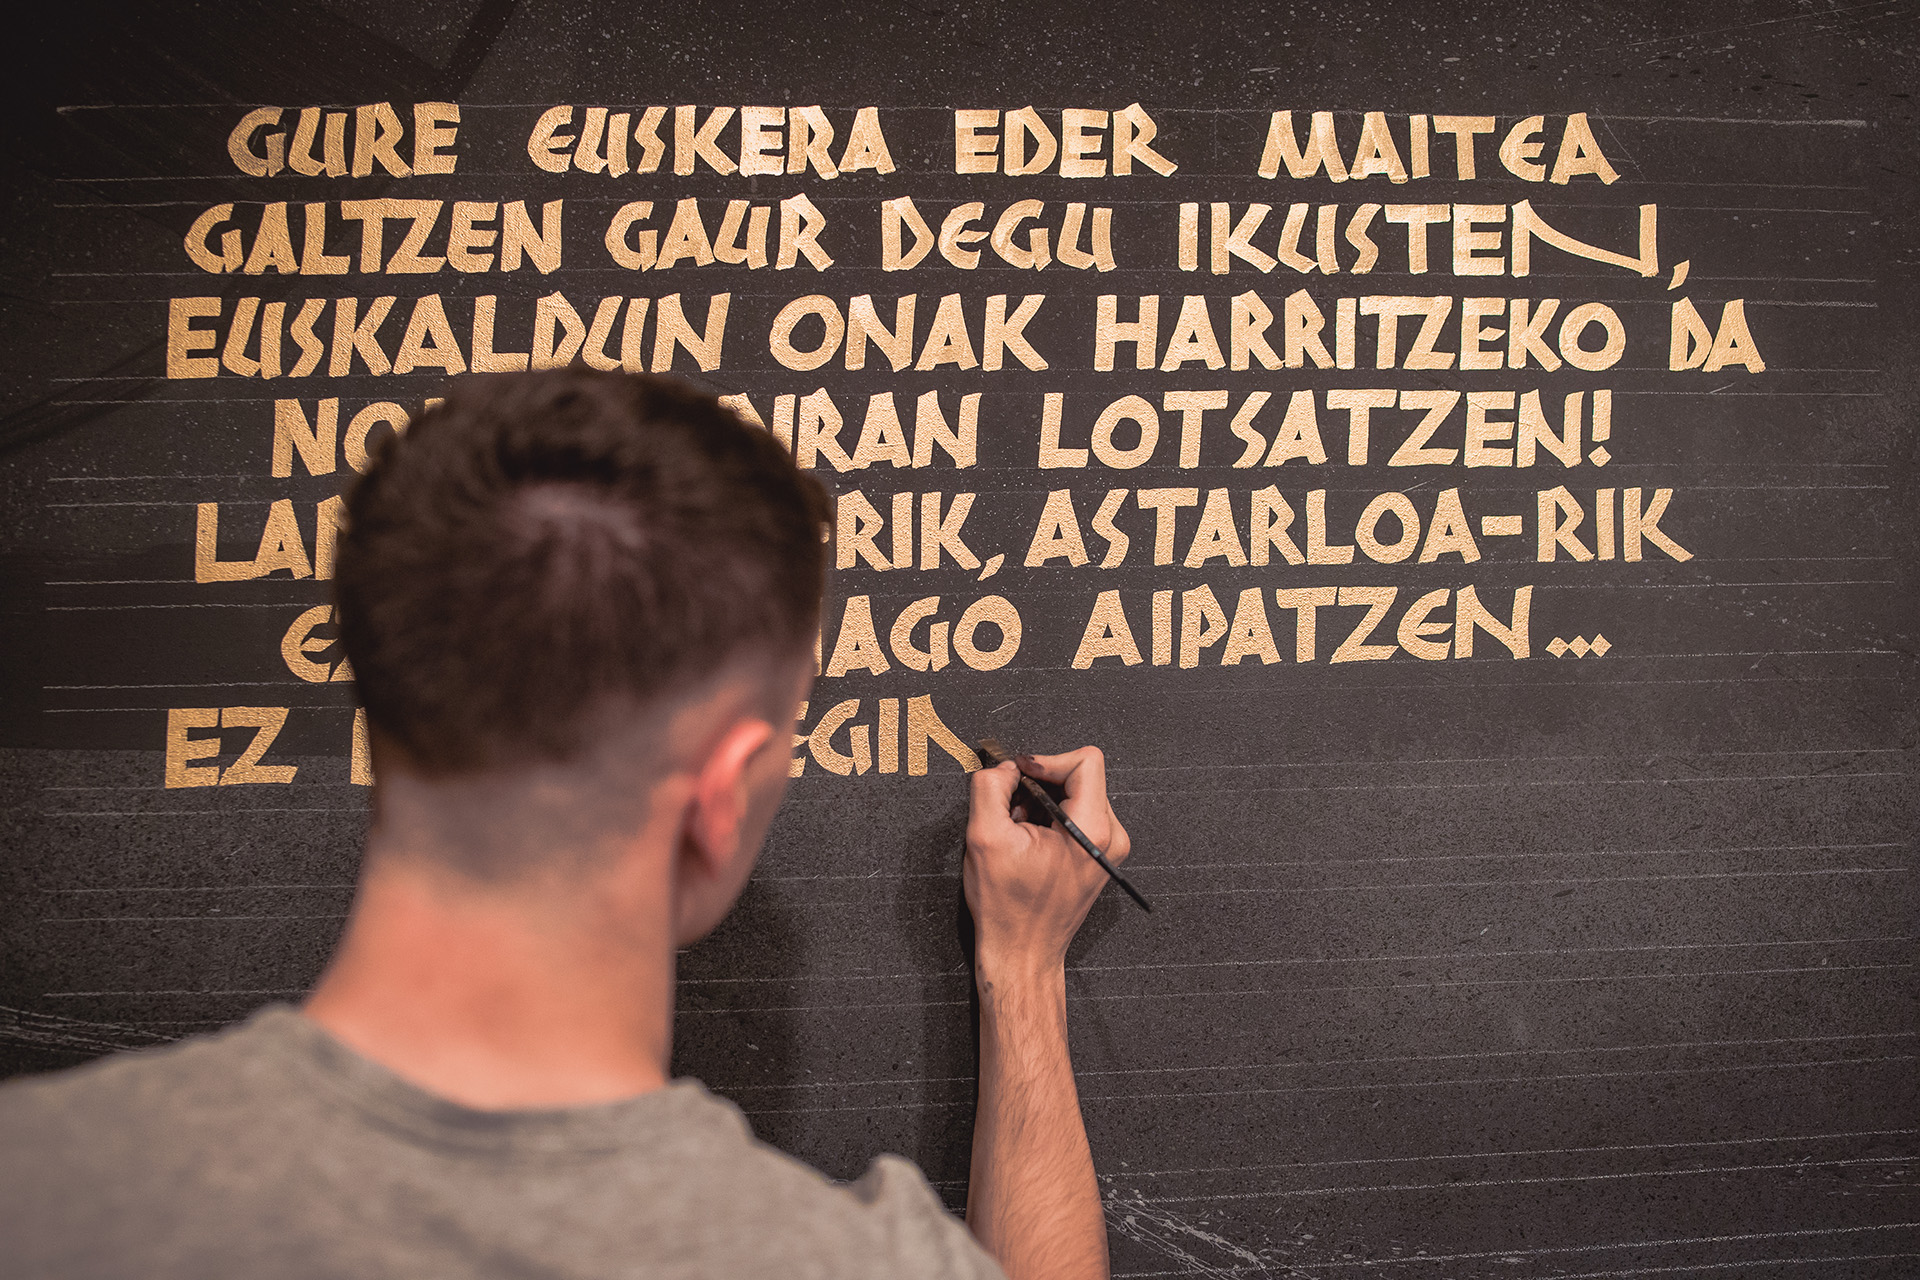 GURE EUSKERA EDER MAITEA
GALTZEN GAUR DEGU IKUSTEN,
EUSKALDUN ONAK HARRITZEKO DA
LOTSATZEN!
ASTARLOA-RIK
AIPATZEN...
EZ